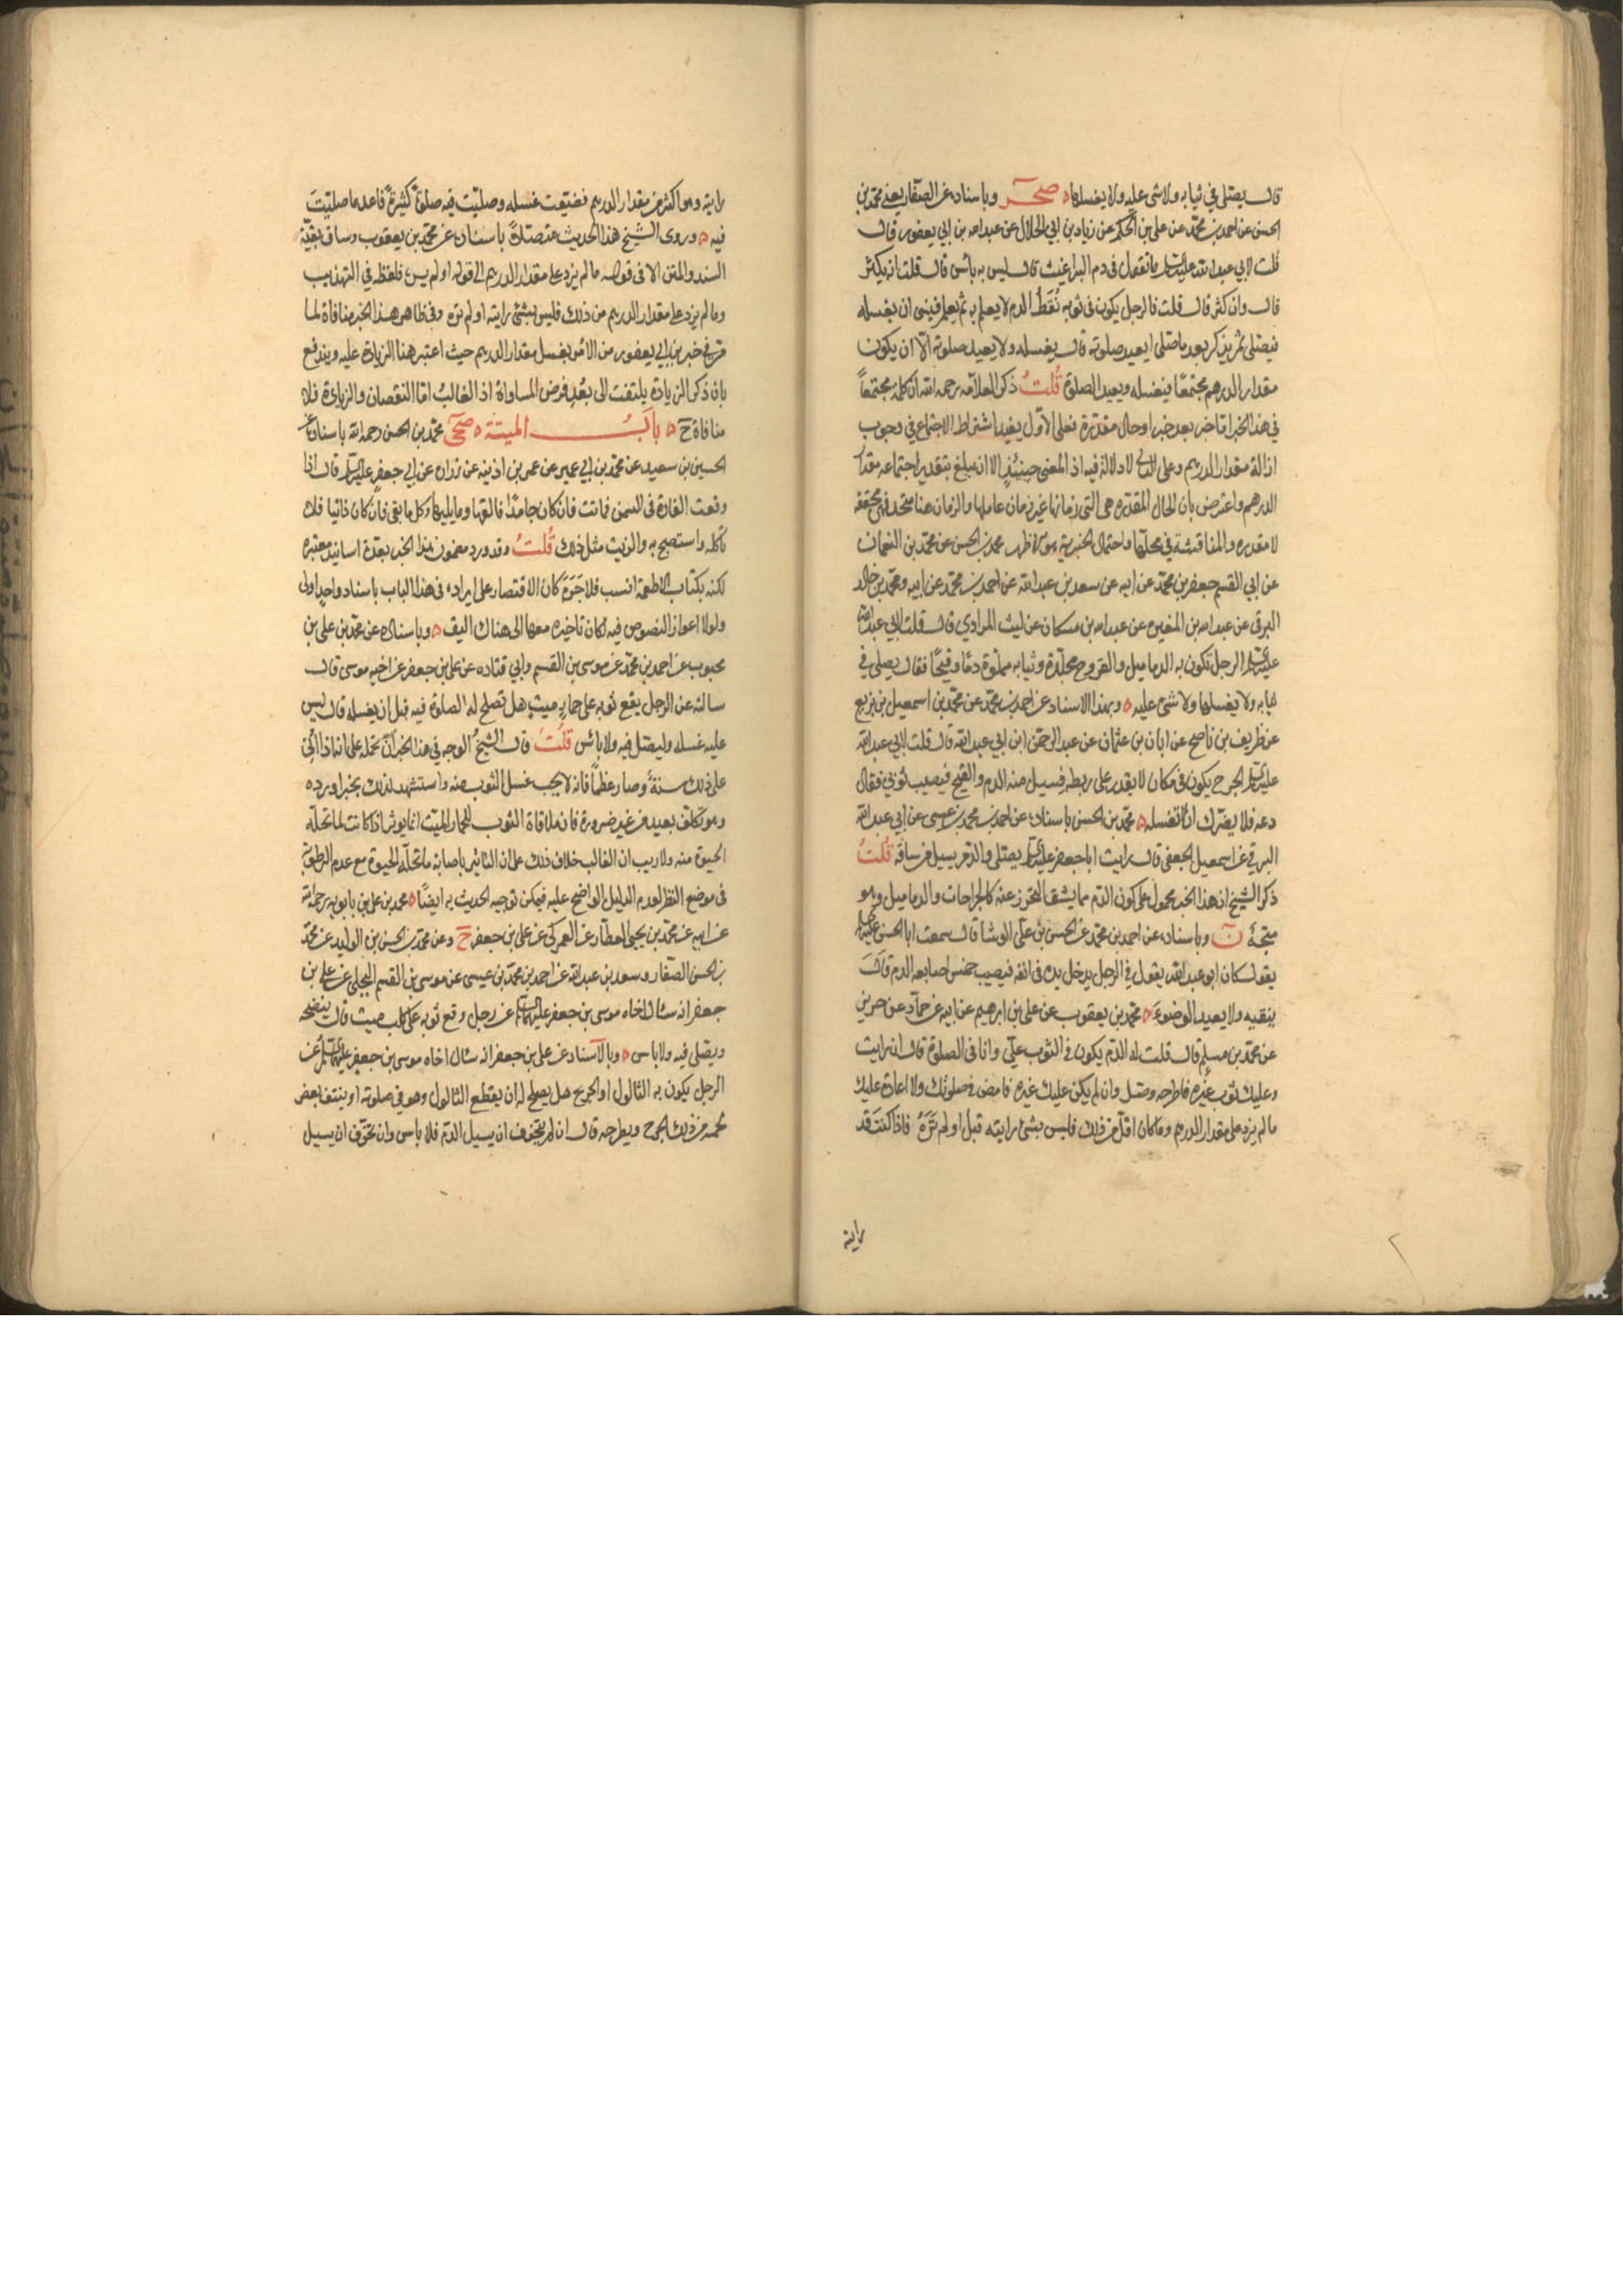 قال يصلى في ثيابه ولا شى عليه ولا يغسلها صحر وباسناده عن الصفار يعني محمد بن
الحسن عن احمد بن محمد عن علي بن الحكم عن زياد بن ابي الحلال عن عبد الله بن ابي يعفور قال
قلت لابي عبد الله عليه السلام ما تقول فى دم البراغيث قال ليس به بأس قال قلت انه يكثر
قال وان كثر قال قلت فالرجل يكون فى ثوبه نُقَط الدم لا يعلم به ثم يعلم فينسى ان يغسله
فيصلى ثم يذكر بعد ما صلى ايعيد صلوته قال يغسله ولا يعيد صلوته الا ان يكون
مقدار الدرهم مجتمعًا فيغسله ويعيد الصلوة قُلتُ ذكر العلامة رحمه الله ان كلمة مجتمعاً
في هذا الخبر اما خبر بعد خبر او حال مقدرة فعلى الاول يفيد اشتراط الاجتماع فى وجوب
ازالة مقدار الدرهم وعلى الثاني لا دلالة فيه اذ المعنى حينئذٍ الا ان يبلغ بتقدير اجتماعه مقدار
الدرهم واعترض بان الحال المقدره هى التى زمانها غير زمان عاملها والزمان هنا متحد فهى محققه
لا مقدره والمناقشة في محلها واحتمال الخبرية محمد بن الحسن عن محمد بن النعمان
عن ابي القسم جعفر بن محمد عن ابيه عن سعد بن عبد الله عن احمد بن محمد عن ابيه ومحمد بن خالد
البرقى عن عبد الله بن المغيره عن عبد الله بن مسكان عن ليث المرادي قال قلت لابي عبد الله
عليه السلام الرجل تكون به الدماميل والقروح فجلده وثيابه مملوة دمًا وقيحًا فقال يصلى في
ثيابه ولا يغسلها ولا شئ عليه وبهذا الاسناد عن احمد بن محمد عن محمد بن اسمعيل بن بزيع
عن ظريف بن ناصح عن ابان بن عثمان عن عبد الرحمن ابن ابي عبد الله قال قلت لابي عبد الله
عليه السلام الجرح يكون فى مكان لا يقدر على ربطه فيسيل منه الدم والقيح فيصيب ثوبي فقال
دعه فلا يضرك الا تغسله محمد بن الحسن باسناده عن احمد بن محمد بن عيسى عن ابي عبد الله
البرقي عن اسمعيل الجعفى قال رايت ابا جعفر عليه السلام يصلى والدم يسيل من ساقه قُلتُ
ذكر الشيخ ان هذا الخبر محمول على كون الدم مما يشق التحرز عنه كالجراحات والدماميل وهو
متجهٌ ن وباسناده عن احمد بن محمد عن الحسن بن علي الوشا قال سمعت ابا الحسن عليه السلام
يقول كان ابو عبد الله يقول في الرجل يدخل يده فى انفه فيصيب خمس اصابعه الدم قال
ينقيه ولا يعيد الوضوءَ محمد بن يعقوب عن علي بن ابرهيم عن ابيه عن حماد عن حريز
عن محمد بن مسلم قال قلت له الدم يكون فى الثوب علي وانا فى الصلوة قال ان رايت
وعليك ثوب غيره فاطرحه وصل وان لم يكن عليك غيره فامض فى صلوتك ولا اعادة عليك
ما لم يزد على مقدار الدرهم وما كان اقل من ذلك فليس بشئ رايته قبلُ او لم تَرَهُ فاذا كنتَ قد
رايته
رايته وهو اكثر من مقدار الدرهم فضيعت غسله وصليت فيه صلوةً كثيرةً فاعد ما صليتَ
فيه وروى الشيخ هذا الحديث متصلةً باسناده عن محمد بن يعقوب وساق بقية
السند والمتن الا فى قوله ما لم يزد على مقدار الدرهم الى قوله او لم يره فلفظه في التهذيب
وما لم يزد على مقدار الدرهم من ذلك فليس بشئ رايته او لم تره وفى ظاهر هذا الخبر منافاة لما
مر في خبر بن ابي يعفور من الامر بغسل مقدار الدرهم حيث اعتبر هنا الزيادة عليه ويندفع
بان ذكر الزيادة يلتفت الى بُعْدِ فرض المساواة اذ الغالبُ اما النقصان والزيادة فلا
منافاة ح بابُ الميتة صحى محمد بن الحسن رحمه الله باسناده عن
الحسين بن سعيد عن محمد بن ابي عمير عن عمر بن اذينه عن زراره عن ابي جعفر عليه السلام قال اذا
وقعت الفارة فى السمن فماتت فان كان جامدًا فالقها وما يليها وكل ما بقى فان كان ذائبا فلا
تأكله واستصبح به والزيت مثل ذلك قُلتُ وقد ورد مضمون هذا الخبر بعدة اسانيد معتبره
لكنه بكتاب الاطعمة انسب فلا جَرَمَ كان الاقتصار على ايراده فى هذا الباب باسناد واحد اولى
ولولا اعواز النصوص فيه لكان تاخيره معها الى هناك اليق وباسناده عن محمد بن علي بن
محبوب عن احمد بن محمد عن موسى بن القسم وابي قتاده عن علي بن جعفر عن اخيه موسى قال
سالته عن الرجل يقع ثوبه على حمارٍ ميتٍ هل تصلح له الصلوة فيه قبل ان يغسله قال ليس
عليه غسله وليصل فيه ولا باس قلتُ قال الشيخُ الوجه في هذا الخبر ان نحمله على انه اذا اتى
على ذلك سنةً وصار عظماً فانه لا يجب غسل الثوب منه واستشهد لذلك بخبر اورده
وهو تكلف بعيد من غير ضرورة فان ملاقاة الثوب للحمار الميت انما يوثر اذا كانت لما تحله
الحيوة منه ولا ريب ان الغالب خلاف ذلك على ان التاثير باصابة ما تحله الحيوة مع عدم الرطوبة
فى موضع النظر لعدم الدليل الواضح عليه فيمكن توجيه الحديث به ايضًا محمد بن علي بن بابويه رحمه الله
عن ابيه عن محمد بن يحيى العطار عن العمركي عن علي بن جعفر ح وعن محمد بن الحسن بن الوليد عن محمد
بن الحسن الصفار وسعد بن عبد الله عن احمد بن محمد بن عيسى عن موسى بن القسم البجلي عن علي بن
جعفر انه سئال اخاه موسى بن جعفر عليهما السلام عن رجل وقع ثوبه على كلب ميت قال ينضحه
ويصلى فيه ولا باس وبالاسناد عن علي بن جعفر انه سئال اخاه موسى بن جعفر عليهما السلام عن
الرجل يكون به الثالول او الجرح هل يصلح له ان يقطع الثالول وهو في صلوته او ينتف بعض
لحمه من ذلك الجرح ويطرحه قال ان لم يتخوف ان يسيل الدم فلا باس وان تخوف ان يسيل